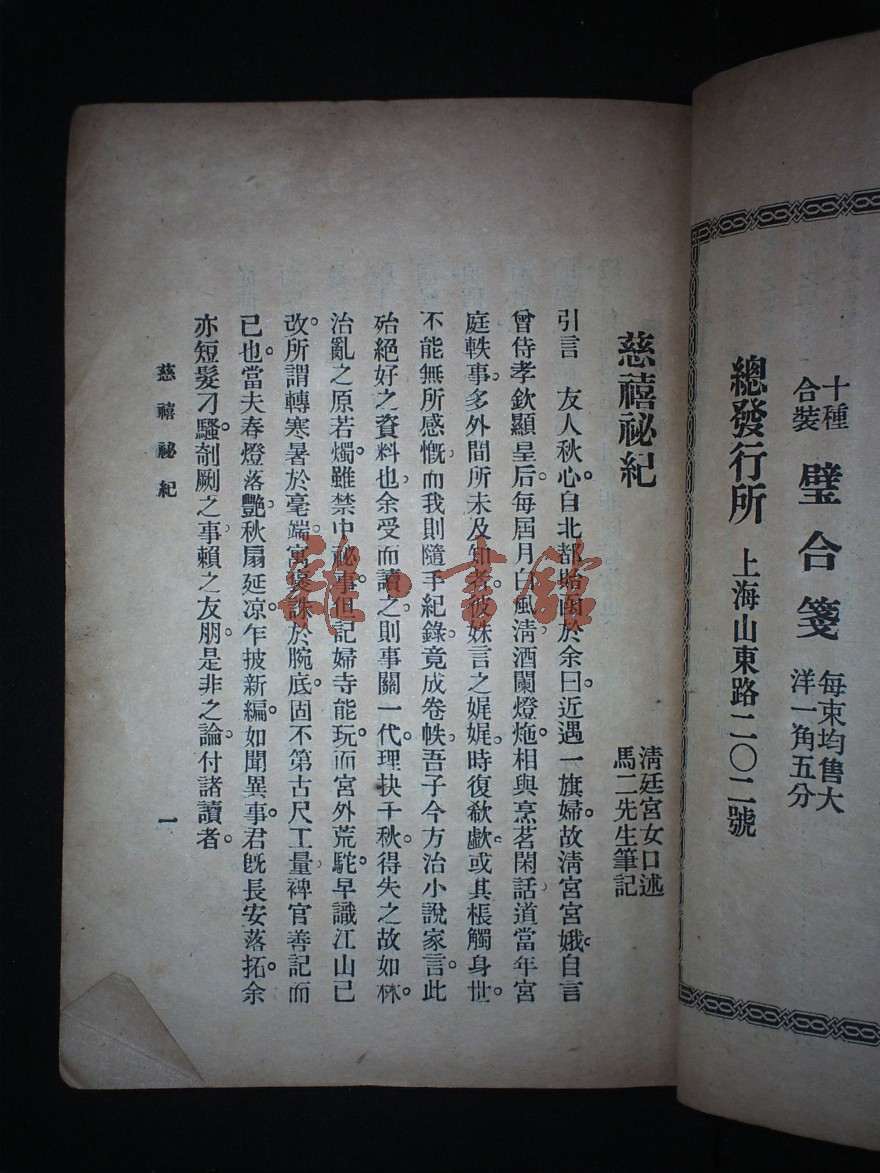 十種
合裝
璧合箋
每束均售大
洋一角五分
總發行所 上海山東路二〇二號
慈禧祕紀
清廷宮女口述
馬二先生筆記
引言 友人秋心。自北都貽函於余曰。近遇一旗婦。故淸宮宮娥。自言
曾侍孝欽顯皇后。每屆月白風淸。酒闌燈灺。相與烹茗閑話。道當年宮
庭軼事。多外間所未及知者。彼姝言之娓娓。時復欷歔。或其棖觸身世。
不能無所感慨。而我則隨手紀錄。竟成卷帙。吾子今方治小說家言。此
殆絕好之資料也。余受而讀之。則事關一代。理抉千秋。得失之故如林。
治亂之原若燭。雖禁中祕事。但記婦寺能玩。而宮外荒駝。早識江山已
改。所謂轉寒暑於毫端。寓褒誅於腕底。固不第古尺工量。裨官善記而
已也。當夫春燈落艷。秋扇延凉。乍披新編。如聞異事。君旣長安落拓。余
亦短髮刁騷。剞劂之事。賴之友朋。是非之論。付諸讀者。
慈禧祕紀
一
雜·書館